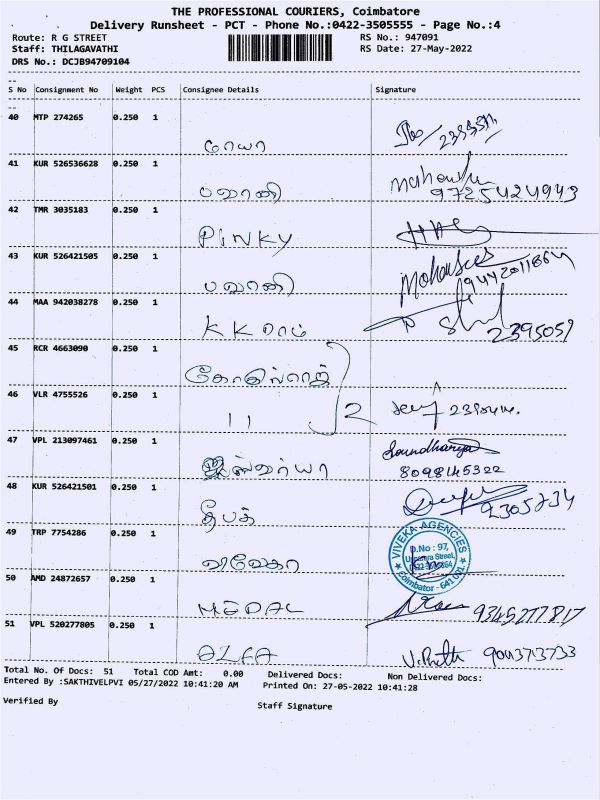 THE PROFESSIONAL COURIERS, Coimbatore
Delivery Runsheet - PCT - Phone No.:0422-3505555 - Page No.:4
Route: R G STREET
RS No.: 947091
Staff: THILAGAVATHI
RS Date: 27-May-2022
DRS No.: DCJB94709104
S No Consignment No Weight PCS Consignee Details Signature
40 MTP 274265 0.250 1 ரோயா
41 KUR 526536628 0.250 1 பழனி 9725424943
42 TMR 3035183 0.250 1 PINKY
43 KUR 526421505 0.250 1 பழனி
44 MAA 942038278 0.250 1 KK ராம் 2395059
45 RCR 4663090 0.250 1
46 VLR 4755526 0.250 1 11 2
47 VPL 213097461 0.250 1 ஐஸ்வர்யா Soundharya
8098145322
48 KUR 526421501 0.250 1 தீபக் 2305234
49 TRP 7754286 0.250 1 VIVEKA AGENCIES D.No : 97, Coimbator - 641 001
50 AMD 24872657 0.250 1 MEDAL 9345277817
51 VPL 520277805 0.250 1 ALFA 9043713733
Total No. Of Docs: 51 Total COD Amt: 0.00 Delivered Docs: Non Delivered Docs:
Entered By :SAKTHIVELPVI 05/27/2022 10:41:20 AM Printed On: 27-05-2022 10:41:28
Verified By
Staff Signature